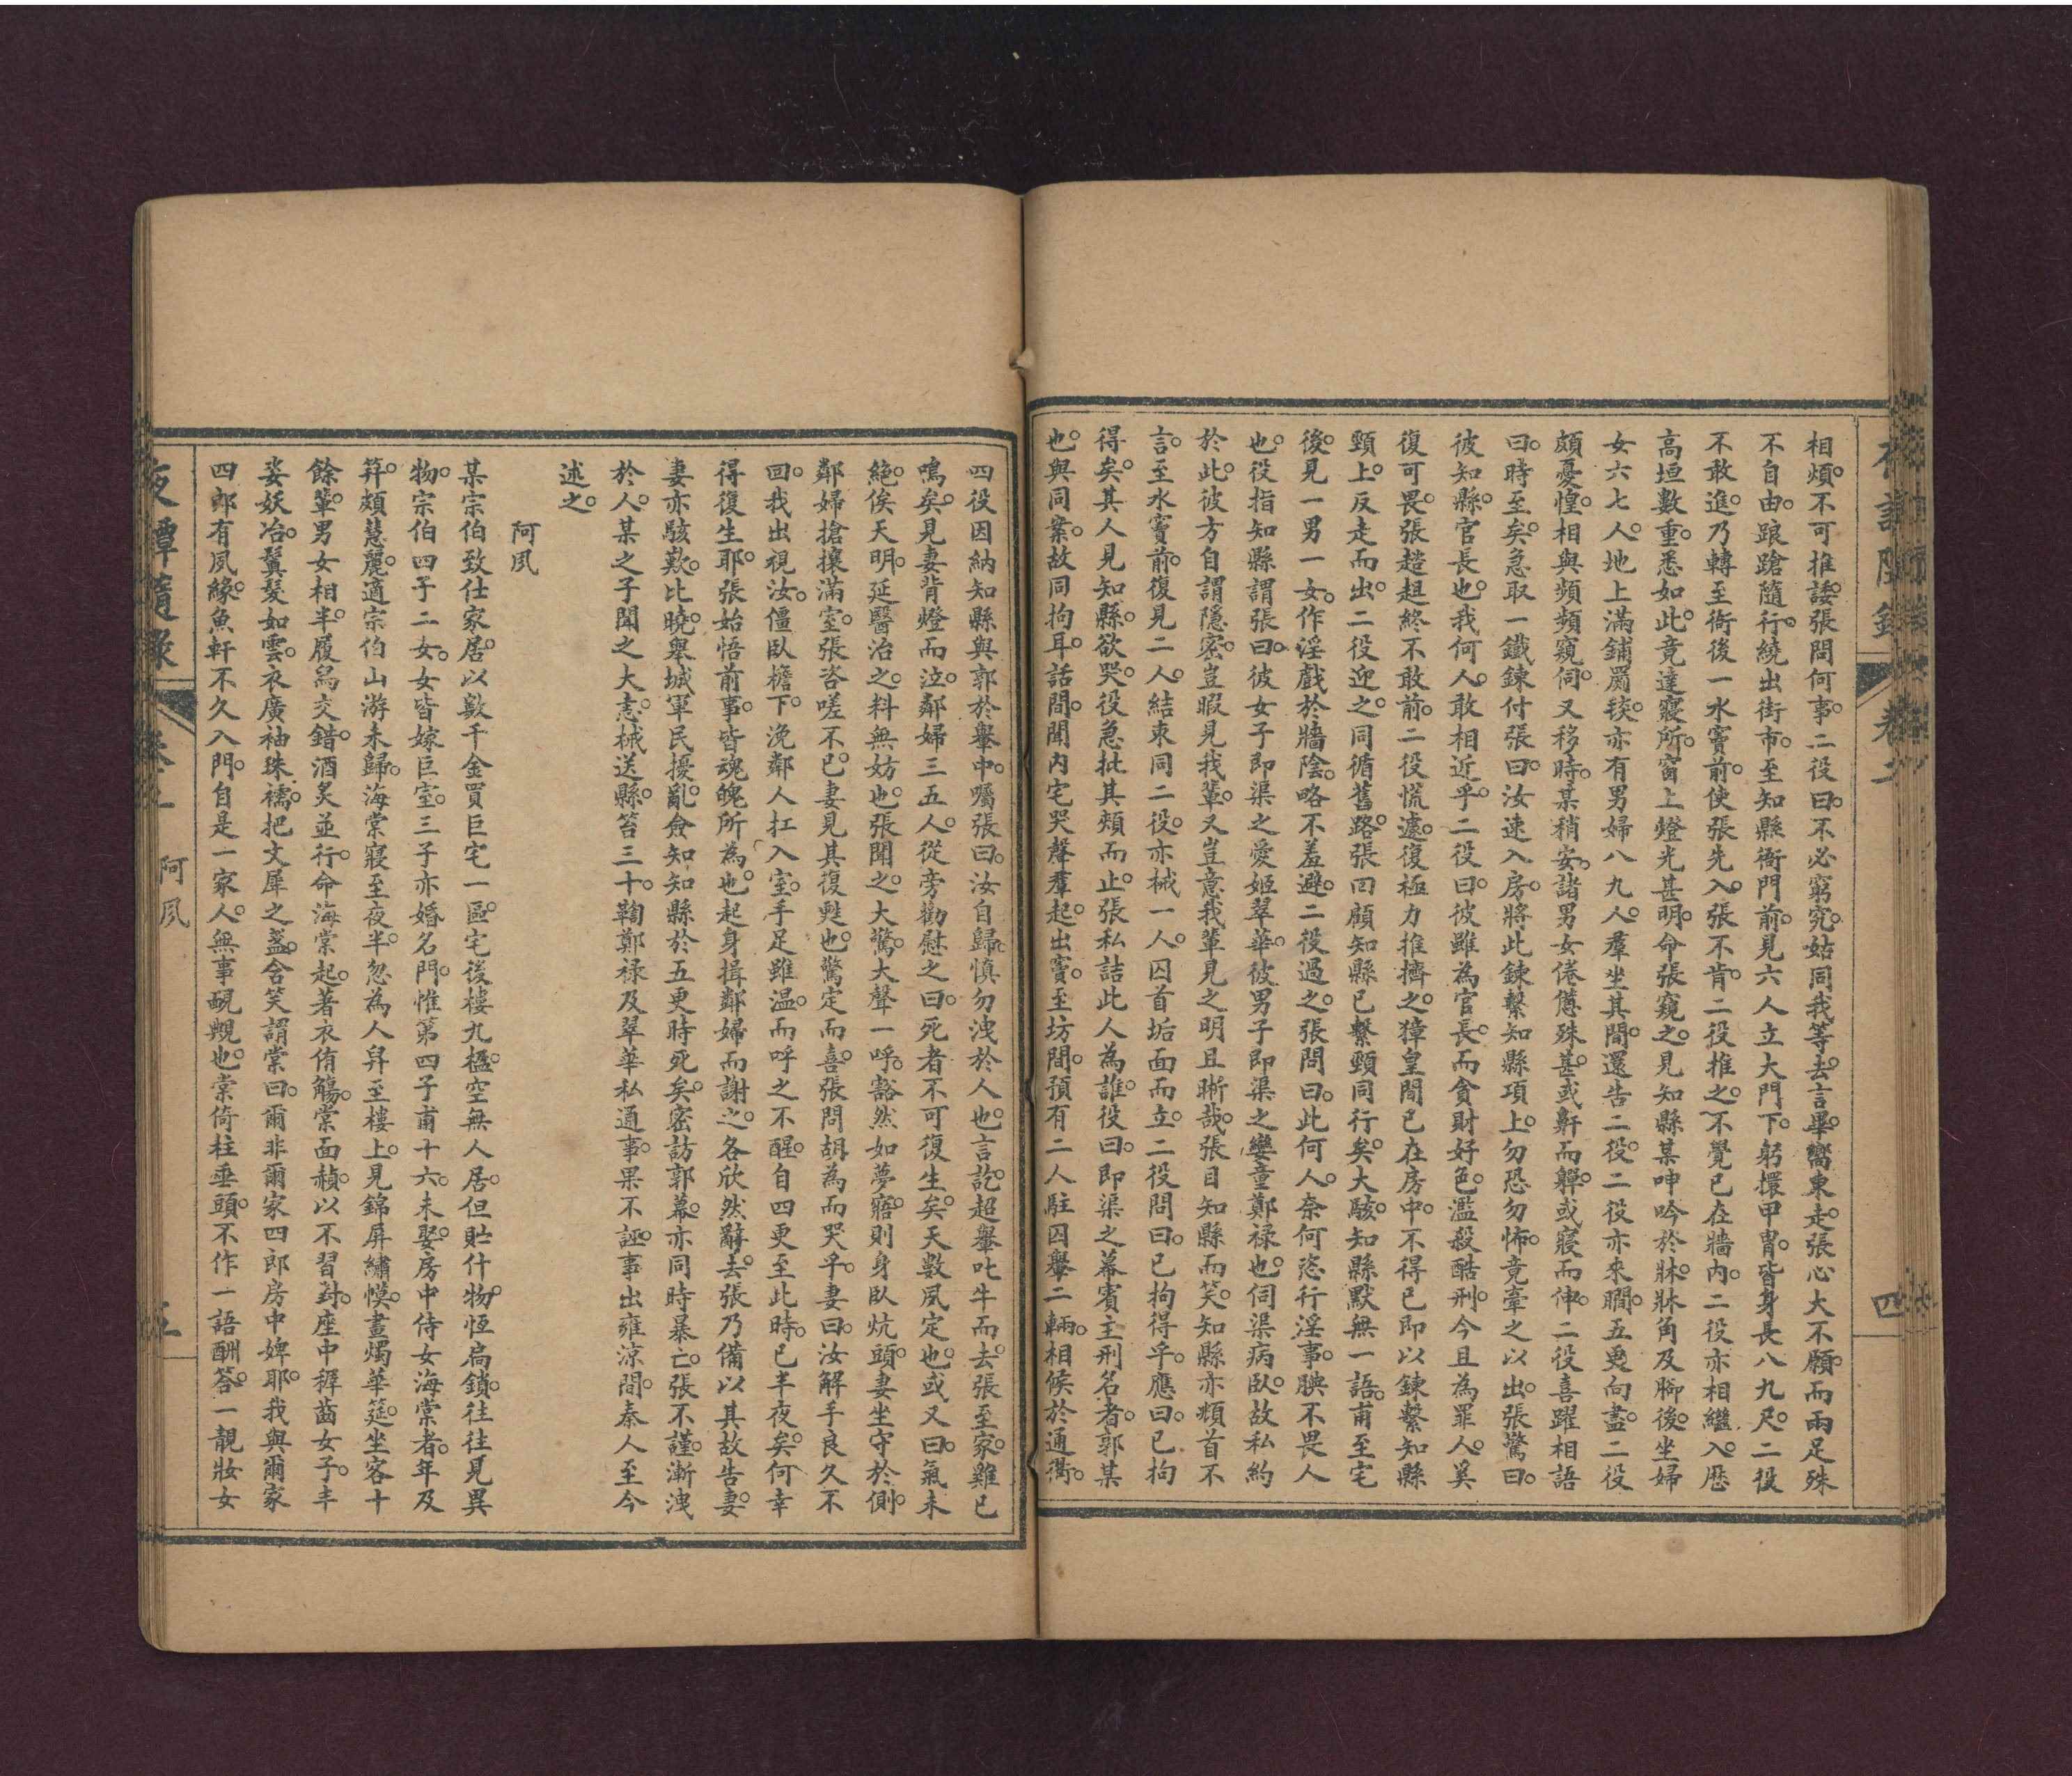 相煩。不可推諉。張問何事。二役曰。不必窮究。姑同我等去。言畢。嚮東走。張心大不願。而兩足殊
不自由。踉蹌隨行。繞出街市。至知縣衙門前。見六人立大門下。躬擐甲冑。皆身長八九尺。二役
不敢進。乃轉至衙後一水竇前。使張先入。張不肯。二役推之。不覺已在牆內。二役亦相繼入。歷
高垣數重。悉如此。竟達寢所。窗上燈光甚明。命張窺之。見知縣某呻吟於牀。牀角及腳後。坐婦
女六七人。地上滿鋪罽毯。亦有男婦八九人。羣坐其間。還告二役。二役亦來瞯。五更向盡。二役
頗憂惶。相與頻頻窺伺。又移時。某稍安。諸男女倦憊殊甚。或鼾而嚲。或寢而伸。二役喜躍相語
曰。時至矣。急取一鐵鍊付張曰。汝速入房。將此鍊繫知縣項上。勿恐勿怖。竟牽之以出。張驚曰。
彼知縣。官長也。我何人。敢相近乎。二役曰。彼雖為官長。而貪財好色。濫殺酷刑。今且為罪人。奚
復可畏。張趑趄終不敢前。二役慌遽。復極力推擠之。獐皇間已在房中。不得已即以鍊繫知縣
頸上。反走而出。二役迎之。同循舊路。張回顧知縣已繫頸同行矣。大駭。知縣默無一語。甫至宅
後。見一男一女。作淫戲於牆陰。略不羞避。二役過之。張問曰。此何人。奈何恣行淫事。腆不畏人
也。役指知縣謂張曰。彼女子即渠之愛姬翠華。彼男子即渠之孌童鄭祿也。伺渠病臥。故私約
於此。彼方自謂隱密。豈暇見我輩。又豈意我輩見之明且晰哉。張目知縣而笑。知縣亦頫首不
言。至水竇前。復見二人。結束同二役。亦械一人。囚首垢面而立。二役問曰。已拘得乎。應曰。已拘
得矣。其人見知縣。欲哭。役急批其頰而止。張私詰此人為誰。役曰。即渠之幕賓主刑名者。郭某
也。與同案。故同拘耳。話間。聞內宅哭聲羣起。出竇。至坊間。預有二人駐囚轝二輛。相候於通衢。
四
四役因納知縣與郭於轝中。囑張曰。汝自歸。慎勿洩於人也。言訖。超轝叱牛而去。張至家。雞已
鳴矣。見妻背燈而泣。鄰婦三五人。從旁勸慰之曰。死者不可復生矣。天數夙定也。或又曰。氣未
絕。俟天明。延醫治之。料無妨也。張聞之。大驚。大聲一呼。豁然如夢寤。則身臥炕頭。妻坐守於側。
鄰婦搶攘滿室。張咨嗟不已。妻見其復甦也。驚定而喜。張問胡為而哭乎。妻曰。汝解手良久不
回。我出視汝。僵臥檐下。浼鄰人扛入室。手足雖温。而呼之不醒。自四更至此時。已半夜矣。何幸
得復生耶。張始悟前事。皆魂魄所為也。起身揖鄰婦而謝之。各欣然辭去。張乃備以其故告妻。
妻亦駭歎。比曉。舉城軍民擾亂。僉知知縣於五更時死矣。密訪郭幕。亦同時暴亡。張不謹。漸洩
於人。某之子聞之大恚。械送縣。笞三十。鞫鄭祿及翠華私通事。果不誣。事出雍涼間。秦人至今
述之。
阿夙
某宗伯致仕家居。以數千金買巨宅一區。宅後樓九楹。空無人居。但貯什物。恆扃鎖。往往見異
物。宗伯四子二女。女皆嫁巨室。三子亦婚名門。惟第四子甫十六。未娶。房中侍女海棠者。年及
笄。頗慧麗。適宗伯山游未歸。海棠寢至夜半。忽為人舁至樓上。見錦屏繡幙。畫燭華筵。坐客十
餘輩。男女相半。履舄交錯。酒炙並行。命海棠起。著衣侑觴。棠面赬。以不習對。座中稺齒女子。丰
姿妖冶。鬒髮如雲。衣廣袖珠襦。把文犀之盞。含笑謂棠曰。爾非爾家四郎房中婢耶。我與爾家
四郎有夙緣。魚軒不久入門。自是一家人。無事靦覥也。棠倚柱垂頭。不作一語酬答。一靚妝女
夜譚隨錄 卷二 阿夙 五